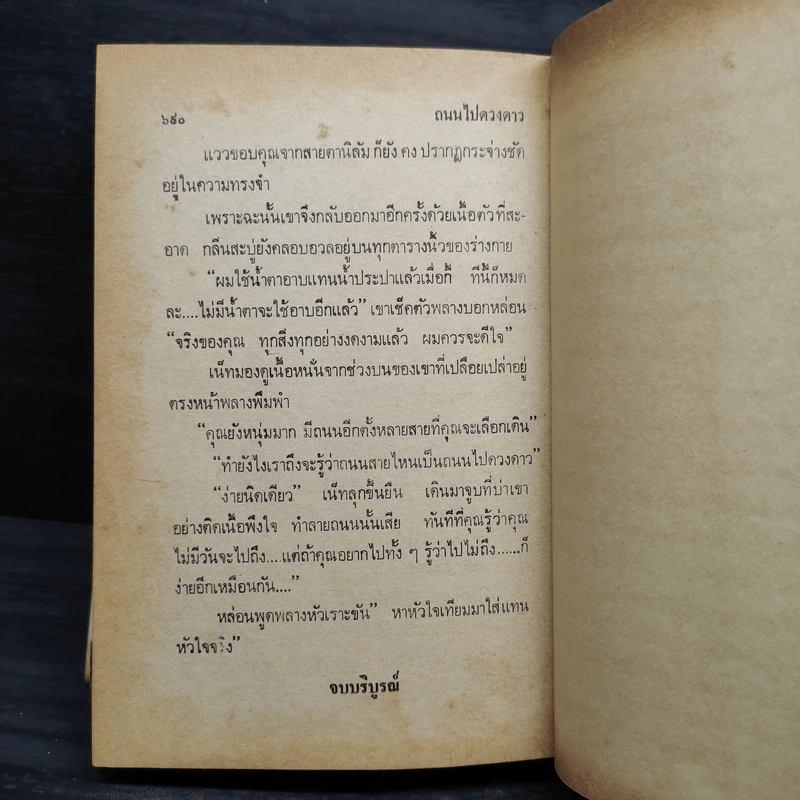 ๖๙๐ ถนนไปดวงดาว
แววขอบคุณจากสายตานิลัม ก็ยัง คง ปรากฏกระจ่างชัด
อยู่ในความทรงจำ
เพราะฉะนั้นเขาจึงกลับออกมาอีกครั้งด้วยเนื้อตัวที่สะ-
อาด กลิ่นสะบู่ยังคลอบอวลอยู่บนทุกตารางนิ้วของร่างกาย
“ผมใช้น้ำตาอาบแทนน้ำประปาแล้วเมื่อกี้ ทีนี้ก็หมด
ละ....ไม่มีน้ำตาจะใช้อาบอีกแล้ว” เขาเช็คตัวพลางบอกหล่อน
“จริงของคุณ ทุกสิ่งทุกอย่างงดงามแล้ว ผมควรจะดีใจ”
เน็ทมองดูเนื้อหนั่นจากช่วงบนของเขาที่เปลือยเปล่าอยู่
ตรงหน้าพลางพึมพำ
“คุณยังหนุ่มมาก มีถนนอีกตั้งหลายสายที่คุณจะเลือกเดิน”
“ทำยังไงเราถึงจะรู้ว่าถนนสายไหนเป็นถนนไปดวงดาว”
“ง่ายนิดเดียว” เน็ทลุกขึ้นยืน เดินมาจูบที่บ่าเขา
อย่างติดเนื้อพึงใจ ทำลายถนนนั้นเสีย ทันทีที่คุณรู้ว่าคุณ
ไม่มีวันจะไปถึง....แต่ถ้าคุณอยากไปทั้ง ๆ รู้ว่าไปไม่ถึง......ก็
ง่ายอีกเหมือนกัน....”
หล่อนพูดพลางหัวเราะขัน” หาหัวใจเทียมมาใส่แทน
หัวใจจริง”
จบบริบูรณ์